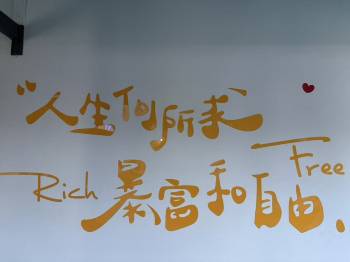 “人生何所求
Free
Rich 暴富和自由、